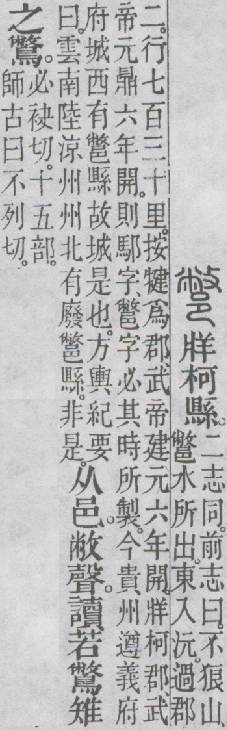 鄨 牂柯縣。二志同。前志曰。不狼山
鄨水所出。東入沅。過郡
二。行七百三十里。按犍爲郡武帝建元六年開。牂柯郡武
帝元鼎六年開。則䣕字鄨字必其時所製。今貴州遵義府
府城西有鄨縣故城是也。方輿紀要
曰。雲南陸涼州州北有廢鄨縣。非是。从邑。敝聲。讀若鷩雉
之鷩。必袂切。十五部。
師古曰不列切。